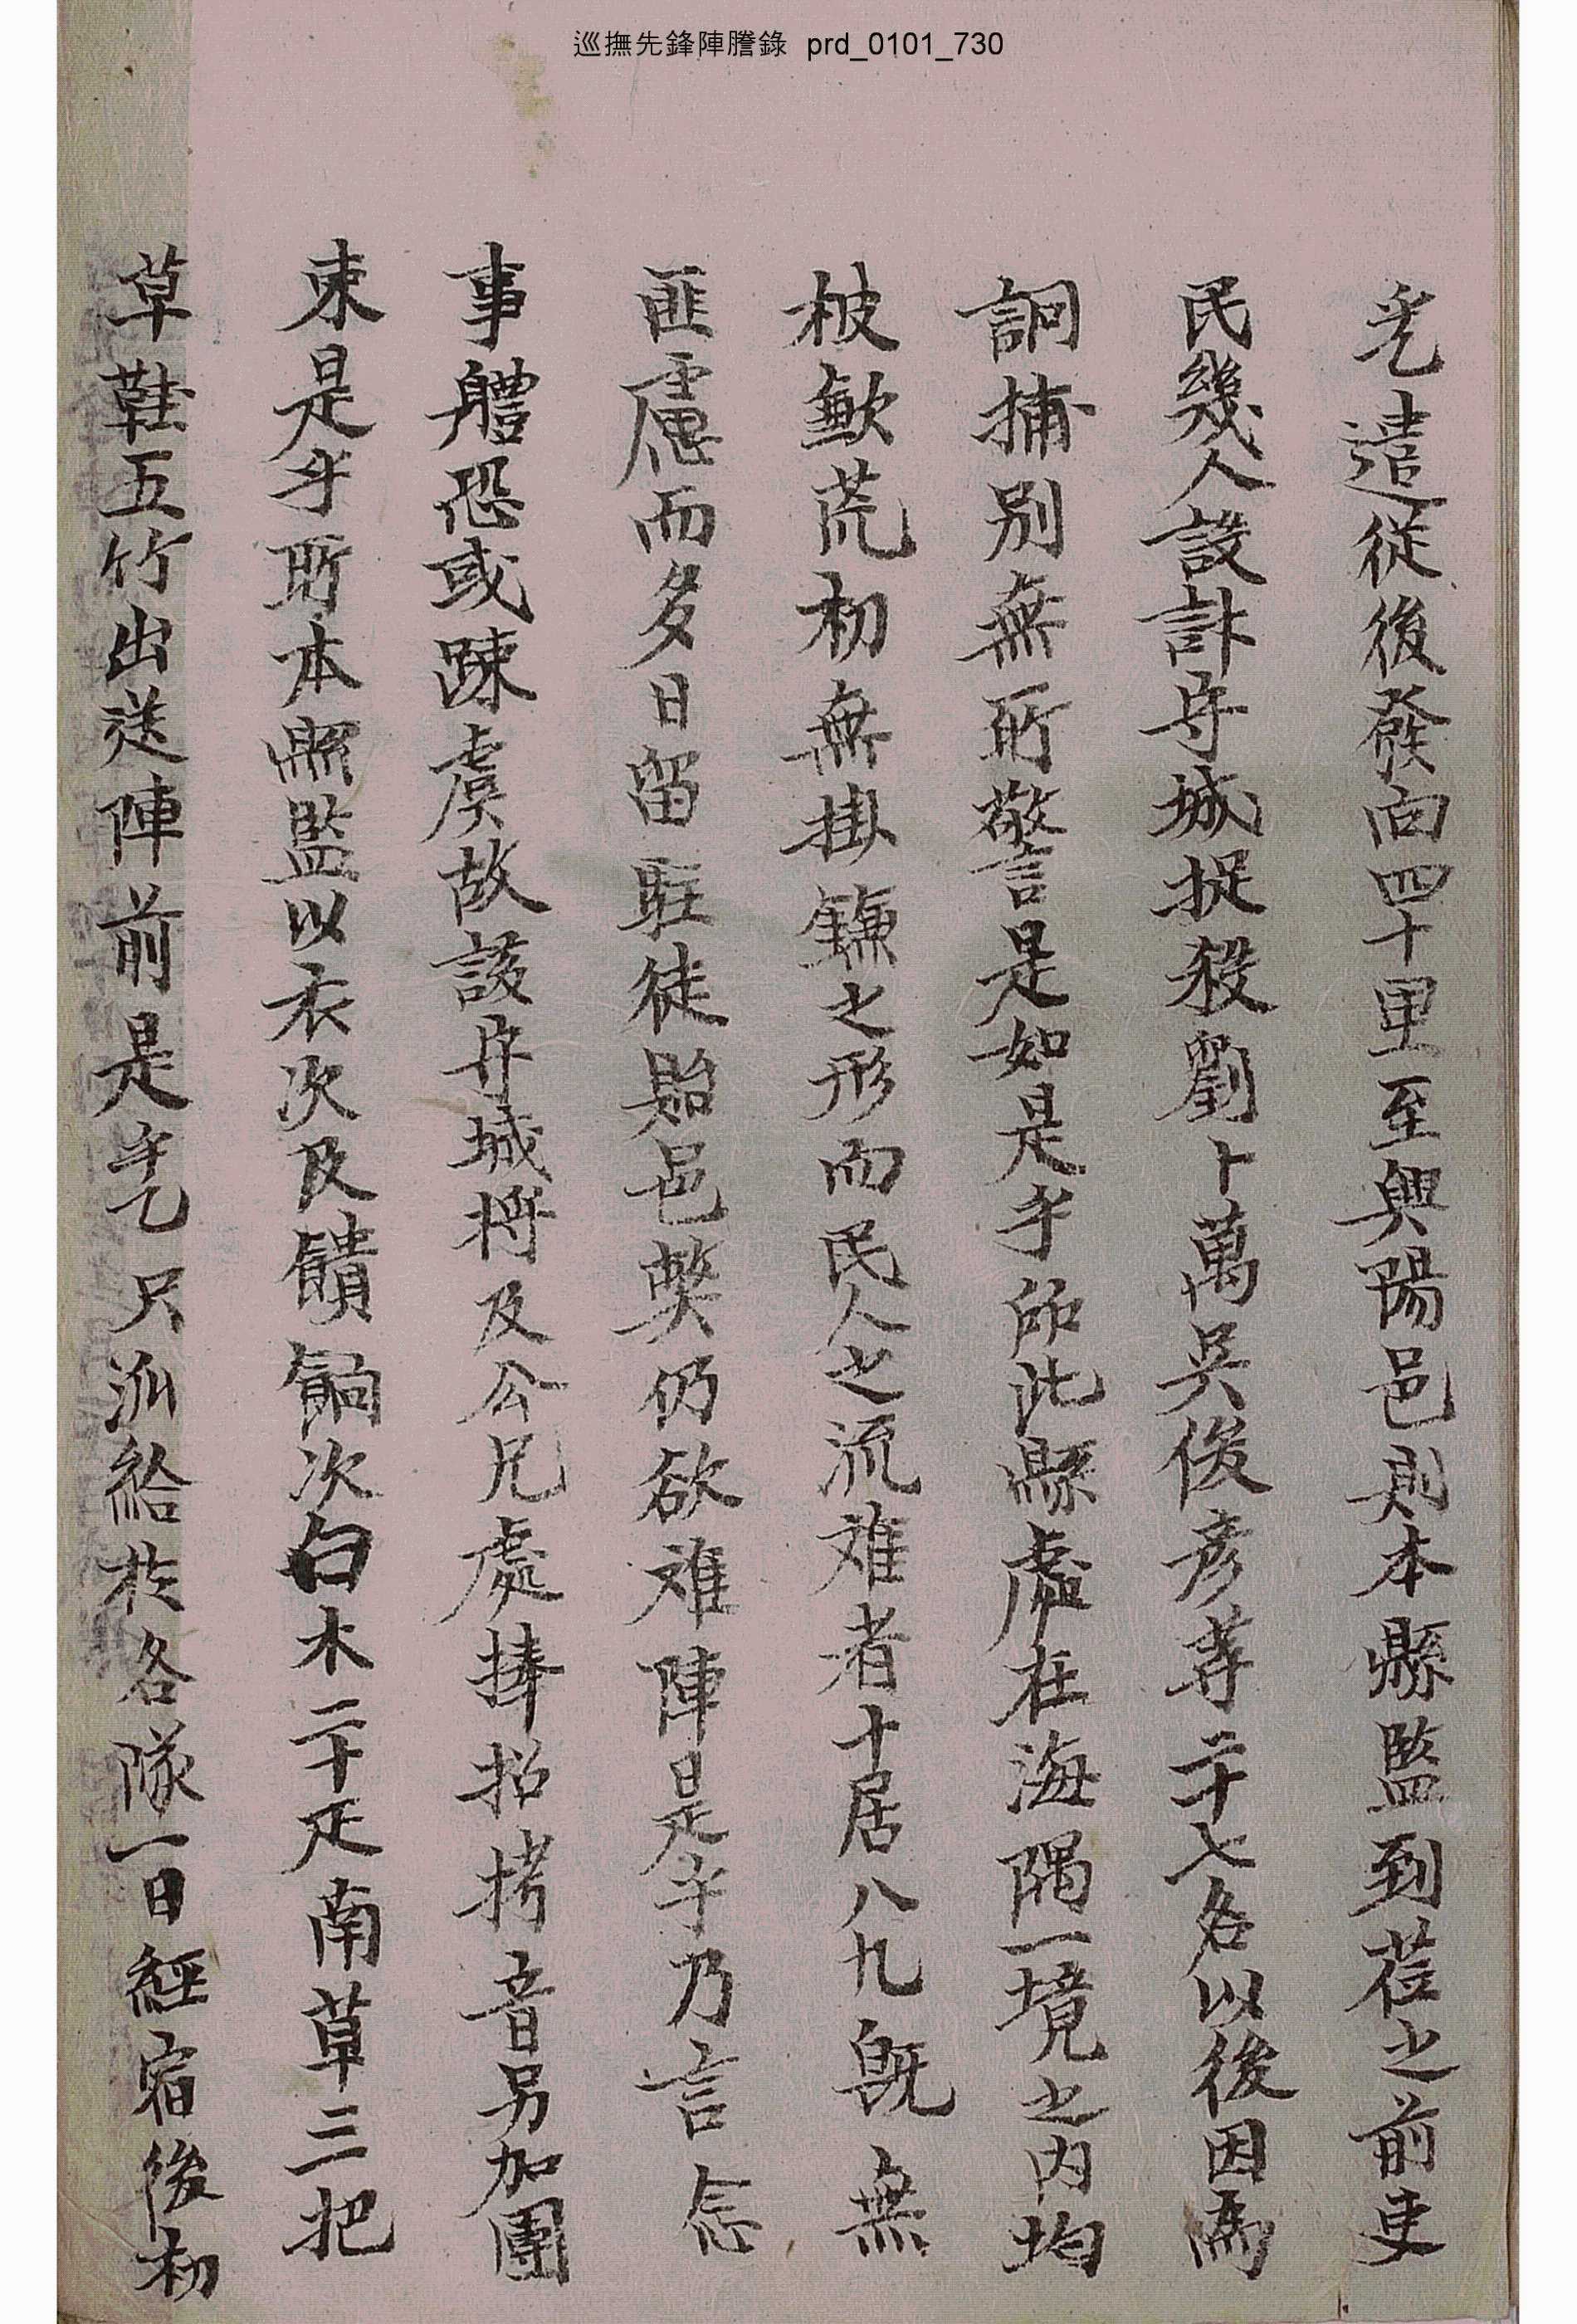 巡撫先鋒陣謄錄 prd_0101_730
乎乙遣從後發向四十里至興陽邑則本縣監到莅之前吏
民幾人設計守城捉殺劉卜萬吳俊彥等二十七名以後因爲
詗捕別無所警是如是乎所此縣處在海隅一境之內均
被歉荒初無掛鎌之形而民人之流难者十居八九旣無
匪慮而多日留駐徒貽邑獘仍欲难陣是乎乃言念
事體恐或踈虞故該守城將及公兄處捧招拷音另加團
束是乎所本縣監以衣次及饋餉次白木二十疋南草三把
草鞋五竹出送陣前是乎乙只派給於各隊一日經宿後初